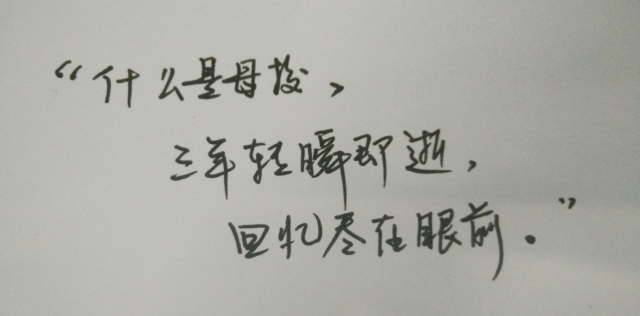 “什么是母校，
三年轻瞬即逝，
回忆尽在眼前。”